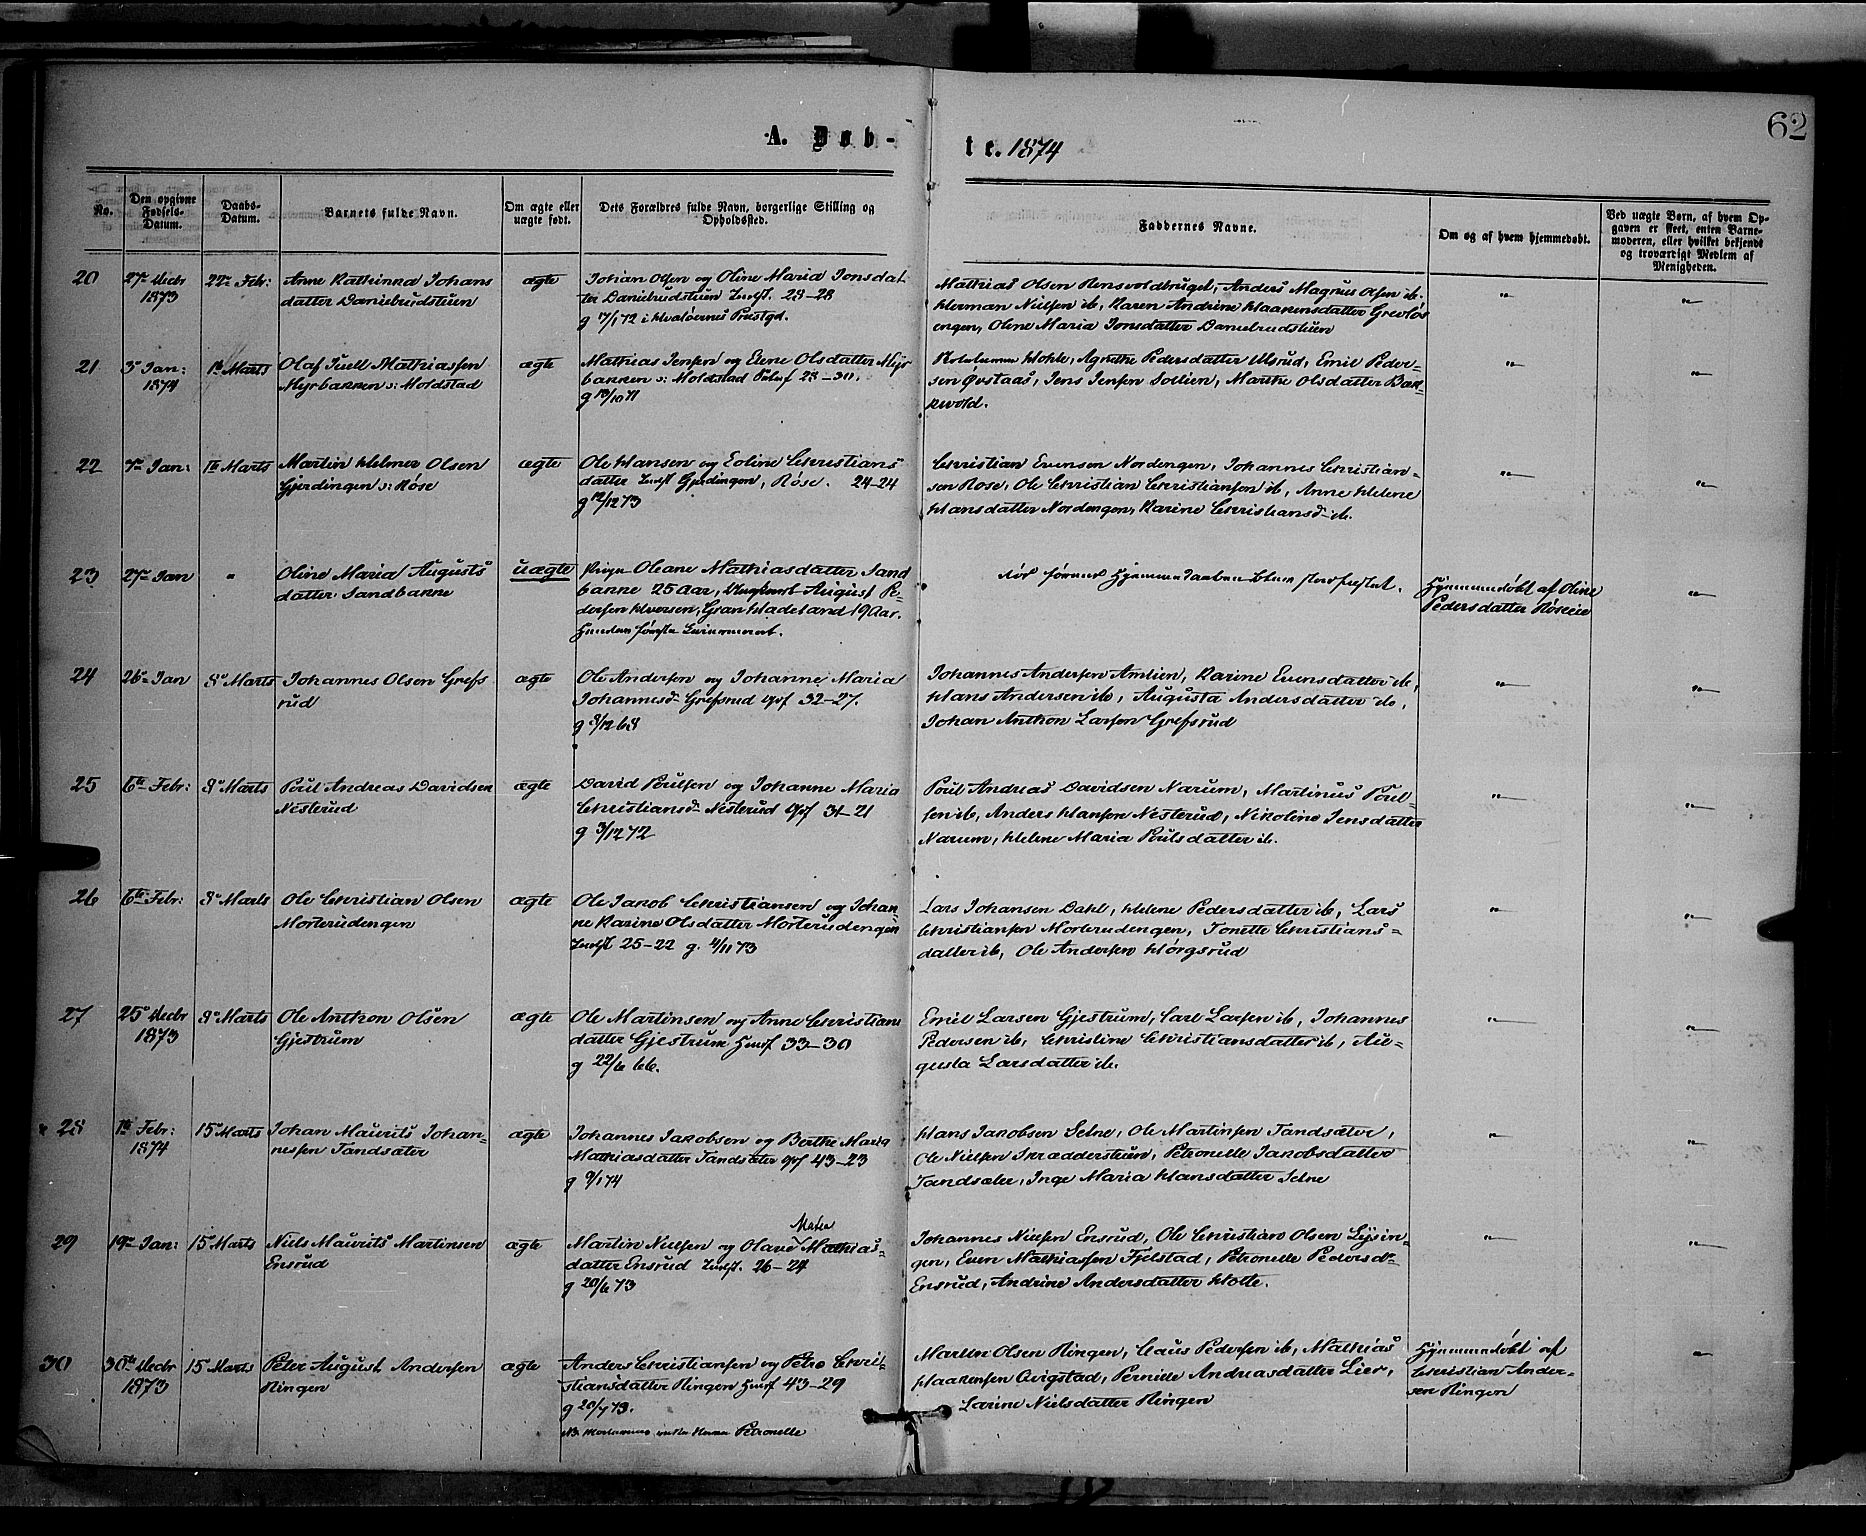 62
A. Døb-
te. 1874
No.
Den opgivne Fødsels-Datum.
Daabs-Datum.
Barnets fulde Navn.
Om ægte eller uægte født.
Dets Forældres fulde Navn, borgerlige Stilling og Opholdssted.
Faddernes Navne.
Om og af hvem hjemmedøbt.
Ved uægte Børn, af hvem Opgaven er skeet, enten Barnemoderen, eller hvilket bekjendt og troværdigt Medlem af Menigheden.
20
27de Decbr 1873
22de Febr:
Anne Kathinka Johans
datter Danielrudstuen
ægte
Johan Olsen og Oline Maria Jonsdat
ter Danielrudstuen Indst. 28-28
g 17/1 72 i Hvaløernes Prestgd.
Mathias Olsen Rensvoldbruget, Anders Magnus Olsen ib.
Herman Nielsen ib, Karen Andrine Haakensdatter Grevlos
engen, Oline Maria Jonsdatter Danielrudstuen
21
3de Jan: 1874
1ste Marts
Olaf Juell Mathiassen
Myrbakken s: Moldstad
ægte
Mathias Jensen og Elene Olsdatter Myr
bakken s: Moldstad 28-30.
g 13/10 71
Hohle, Agnethe Pedersdatter Ulsrud, Emil Peder-
sen Øvstaas, Jens Jensen Sollien, Marthe Olsdatter Bak
kevold.
22
7de Jan:
1ste Marts
Martin Helmer Olsen
Gjerdingen s: Røse
ægte
Ole Hansen og Eoline Christians
datter Indst Gjerdingen, Røse. 24-24
g 12/12 73
Christian Evensen Nordengen, Johannes Christian-
sen Røse, Ole Christian Christiansen ib, Anne Helene
Hansdatter Nordengen, Karine Christiansd. ib.
23
27de Jan
"
Oline Maria Augusts
datter Sandbakke
uægte
Pigen Oleane Mathiasdatter Sand
bakke 25 Aar, Ungkarl August Pe-
dersen Iversen, Gran Hadeland 19 Aar.
Hendes første Leiermaal.
Død førend Hjemmedaaben blev stadfæstet.
Hjemmedøbt af Oline
Pedersdatter Røseeie
24
26de Jan
8de Marts
Johannes Olsen Grefs
rud
ægte
Ole Andersen og Johanne Maria
Johannesd. Grefsrud Gpf 32-27.
g 3/12 68
Johannes Andersen Amlien, Karine Evensdatter ib,
Hans Andersen ib, Augusta Andersdatter ib,
Johan Anthon Larsen Grefsrud
25
6te Febr:
8de Marts
Poul Andreas Davidsen
Nesterud
ægte
David Poulsen og Johanne Maria
Christiansd. Nesterud Gpf 31-21
g 3/12 72
Poul Andreas Davidsen Narum, Martinus Poul-
sen ib, Anders Hansen Nesterud, Nikoline Jensdatter
Narum, Helene Maria Poulsdatter ib.
26
6te Febr:
8de Marts
Ole Christian Olsen
Morterudengen
ægte
Ole Jakob Christiansen og Johan-
ne Karine Olsdatter Morterudengen
Indst 25-22 g. 4/11 73
Lars Johansen Dahl, Helene Pedersdatter ib, Lars
Christiansen Morterudengen, Tonette Christians-
datter ib, Ole Andersen Hørgsrud
27
25de Decbr 1873
8de Marts
Ole Anthon Olsen
Gjestrum
ægte
Ole Martinsen og Anne Christians
datter Gjestrum Husf 33-30
g 22/6 66.
Emil Larsen Gjestrum, Carl Larsen ib, Johannes
Pedersen ib, Christine Christiansdatter ib, Au-
gusta Larsdatter ib.
28
1ste Febr: 1874
15de Marts
Johan Maurits Johan-
nessen Tandsæter
ægte
Johannes Jakobsen og Berthe Maria
Mathiasdatter Tandsæter Gpf 43-23
g 9/1 74
Hans Jakobsen Selne, Ole Martinsen Tandsæter,
Ole Nielsen Skrædderstuen, Petronelle Jakobsdatter
Tandsæter, Inge Maria Hansdatter Selne
29
19de Jan:
15de Marts
Niels Maurits Martinsen
Ensrud
ægte
Maria
Martin Nielsen og Olave Mathias-
datter Ensrud Indst. 26-24
g 20/6 73
Johannes Nielsen Ensrud, Ole Christian Olsen Lysin-
gen, Even Mathiassen Fjelstad, Petronelle Pedersd.
Ensrud, Andrine Andersdatter Holte.
30
30te Decbr 1873
15de Marts
Peter August Andersen
Ringen
ægte
Anders Christiansen og Petra Chri-
stiansdatter Ringen Husf 43-29
g 20/7 73.
NB Moderens Navn Petronelle
Martin Olsen Ringen, Claus Pedersen ib, Mathias
Haakensen Qvigstad, Pernille Andreasdatter Lier,
Larine Nielsdatter Ringen
Hjemmedøbt af
Christian Ander-
sen Ringen